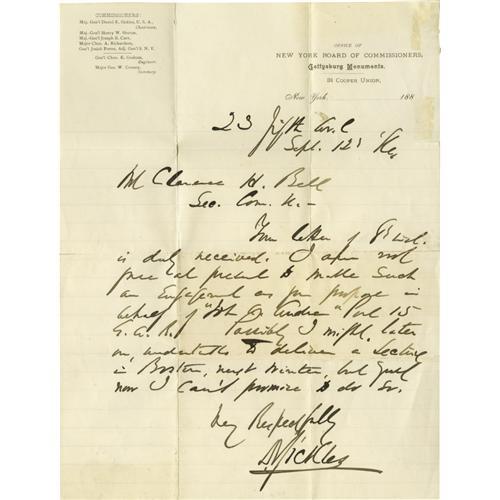 COMMISSIONERS:
Maj. Gen'l Daniel E. Sickles, U. S. A.,
Chairman,
Maj. Gen'l Henry W. Slocum,
Maj.-Gen'l Joseph B. Carr,
Major Chas. A. Richardson,
Gen'l Josiah Porter, Adj. Gen'l S. N. Y.
Gen'l Chas. K. Graham,
Engineer.
Major Geo. W. Cooney,
Secretary.
OFFICE OF
NEW YORK BOARD OF COMMISSIONERS,
Gettysburg Monuments.
COOPER UNION,
New York, 188
23 Fifth Av.
Sept. 12
Clarence H. Bell
Sec. Com. &c. –
Your letter of 8th inst.
is duly received. I am not
free at present to make such
an Engagement as you propose in
behalf of "John A. Andrew" Post 15
G. A. R. Possibly I might, later
on, undertake to deliver a Lecture
in Boston, next winter, but just
now I can't promise to do so.
Very Respectfully
D Sickles